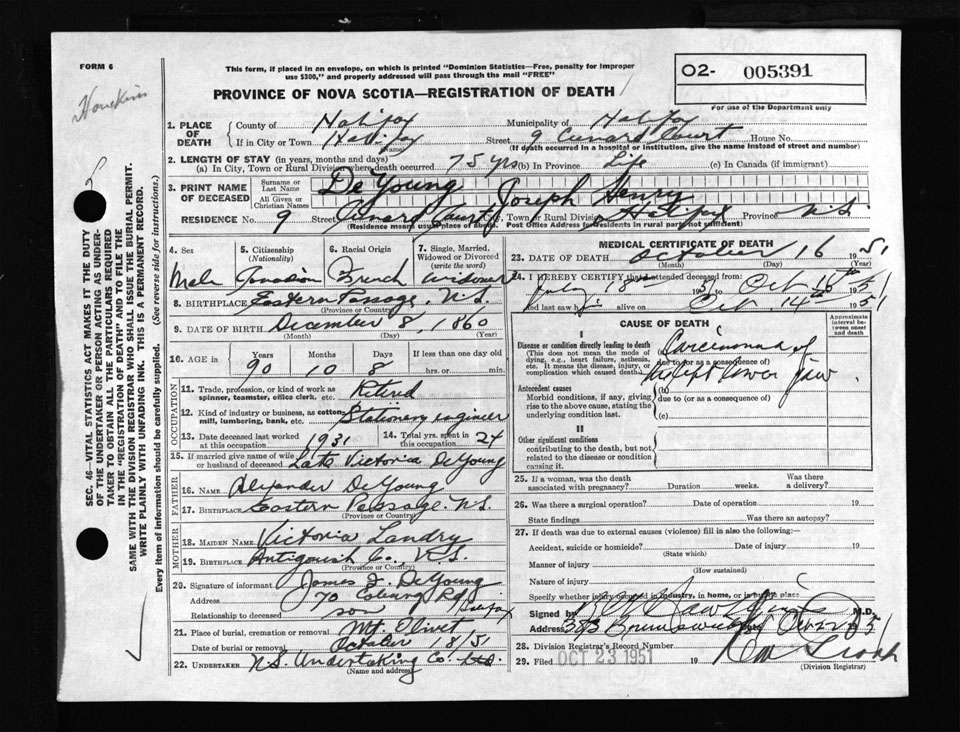 FORM 6
This form, if placed in an envelope, on which is printed "Dominion Statistics—Free, penalty for improper
use $300," and properly addressed will pass through the mail "FREE"
PROVINCE OF NOVA SCOTIA—REGISTRATION OF DEATH
O2- 005391
For use of the Department only
1. PLACE OF DEATH
County of Halifax Municipality of Halifax
If in City or Town Halifax (name) Street 9 Cunard Court House No.
(If death occurred in a hospital or institution, give the name instead of street and number)
2. LENGTH OF STAY (in years, months and days)
(a) In City, Town or Rural Division where death occurred 75 yrs (b) In Province Life (c) In Canada (if immigrant)
3. PRINT NAME OF DECEASED
Surname or Last Name DeYoung
All Given or Christian Names Joseph Henry
RESIDENCE No. 9 Street Cunard Court City, Town or Rural Division Halifax Province N.S.
(Residence means usual place of abode. Post Office Address for residents in rural part not sufficient)
4. Sex Male
5. Citizenship (Nationality) Canadian
6. Racial Origin French
7. Single, Married, Widowed or Divorced (write the word) Widower
8. BIRTHPLACE Eastern Passage, N.S.
(Province or Country)
9. DATE OF BIRTH December 8, 1860
(Month) (Day) (Year)
10. AGE in Years 90 Months 10 Days 8 If less than one day old hrs. or min.
OCCUPATION
11. Trade, profession, or kind of work as spinner, teamster, office clerk, etc. Retired
12. Kind of industry or business, as cotton mill, lumbering, bank, etc. Stationary engineer
13. Date deceased last worked at this occupation 1931
14. Total yrs. spent in this occupation 24
15. If married give name of wife or husband of deceased Late Victoria DeYoung
FATHER
16. NAME Alexander DeYoung
17. BIRTHPLACE Eastern Passage N.S.
(Province or Country)
MOTHER
18. MAIDEN NAME Victoria Landry
19. BIRTHPLACE Antigonish Co., N.S.
(Province or Country)
20. Signature of informant James J. DeYoung
Address 70 Coburg Rd, Halifax
Relationship to deceased son
21. Place of burial, cremation or removal Mt. Olivet
Date of burial or removal October 18/51
22. UNDERTAKER N.S. Undertaking Co. Ltd.
(Name and address)
MEDICAL CERTIFICATE OF DEATH
23. DATE OF DEATH October 16 1951
(Month) (Day) (Year)
24. I HEREBY CERTIFY that I attended deceased from:
July 18th 1951 to Oct 16th 1951
and last saw h alive on Oct. 14th 1951
CAUSE OF DEATH
Approximate interval between onset and death
I
Disease or condition directly leading to death
(This does not mean the mode of dying, e.g., heart failure, asthenia, etc. It means the disease, injury, or complication which caused death.)
Carcinoma of
due to (or as a consequence of)
left lower jaw.
Antecedent causes
Morbid conditions, if any, giving rise to the above cause, stating the underlying condition last.
(b)
due to (or as a consequence of)
(c)
II
Other significant conditions
contributing to the death, but not related to the disease or condition causing it.
25. If a woman, was the death associated with pregnancy? Duration weeks. Was there a delivery?
26. Was there a surgical operation? Date of operation 19
State findings Was there an autopsy?
27. If death was due to external causes (violence) fill in also the following:
Accident, suicide or homicide? Date of injury 19
(State which)
Manner of injury
(How sustained)
Nature of injury
Specify whether injury occurred in industry, in home, or in public place
Signed by M.D.
Address 383 Brunswick
28. Division Registrar's Record Number
29. Filed OCT 23 1951 19
(Division Registrar)
SEC. 46—VITAL STATISTICS ACT MAKES IT THE DUTY
OF THE UNDERTAKER OR PERSON ACTING AS UNDER-
TAKER TO OBTAIN ALL THE PARTICULARS REQUIRED
IN THE "REGISTRATION OF DEATH" AND TO FILE THE
SAME WITH THE DIVISION REGISTRAR WHO SHALL ISSUE THE BURIAL PERMIT.
WRITE PLAINLY WITH UNFADING INK. THIS IS A PERMANENT RECORD.
Every item of information should be carefully supplied. (See reverse side for instructions.)